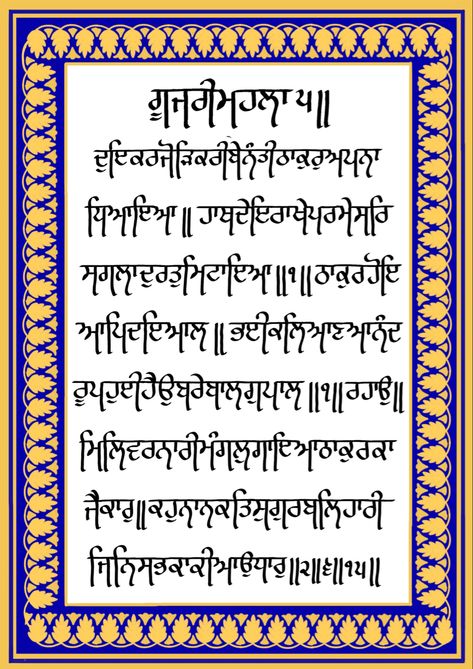 ਗੂਜਰੀਮਹਲਾ੫॥
ਦੁਇਕਰਜੋੜਿਕਰੀਬੇਨੰਤੀਠਾਕੁਰੁਅਪਨਾ
ਧਿਆਇਆ॥ ਹਾਥਦੇਇਰਾਖੇਪਰਮੇਸਰਿ
ਸਗਲਾਦੁਰਤੁਮਿਟਾਇਆ॥੧॥ਠਾਕੁਰਹੋਇ
ਆਪਿਦਇਆਲ॥ਭਈਕਲਿਆਣਆਨੰਦ
ਰੂਪਹੁਈਹੈਉਬਰੇਬਾਲਗੁਪਾਲ॥੧॥ਰਹਾਉ॥
ਮਿਲਿਵਰਨਾਰੀਮੰਗਲੁਗਾਇਆਠਾਕੁਰਕਾ
ਜੈਕਾਰੁ॥ਕਹੁਨਾਨਕਤਿਸੁਗੁਰਬਲਿਹਾਰੀ
ਜਿਨਿਸਭਕਾਕੀਆਉਧਾਰੁ॥੨॥੬॥੧੫॥